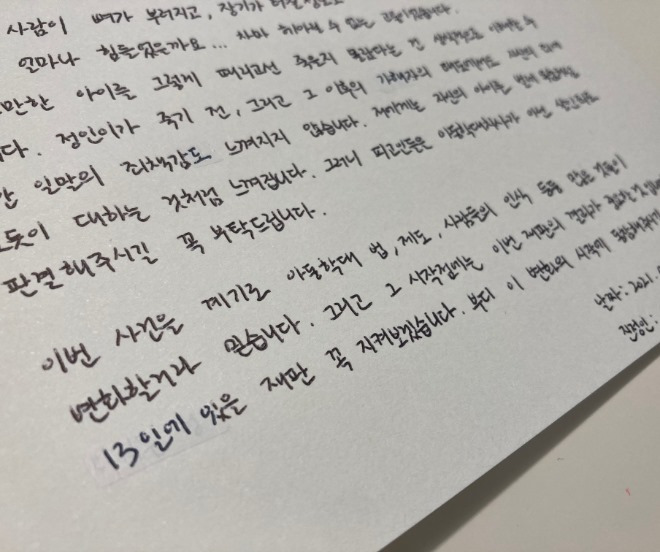 사람이 뼈가 부러지고, 장기가
얼마나 힘들었을까요... 차마 헤아릴 수 없는 고통이었습니다.
만한 아이를 그렇게 때리고선 죽을지 몰랐다는 건 상식적으로 이해할 수
다. 정인이가 죽기 전, 그리고 그 이후의 가해자의 태도에서도
일말의 죄책감도 느껴지지 않습니다. 저에게는 자신의 아이를
듯이 대하는 것처럼 느껴집니다. 그러니 피고인들을 아동학대치사가 아닌 살인죄로
판결해주시길 꼭 부탁드립니다.
이번 사건을 계기로 아동학대 법, 제도, 사람들의 인식 등등 많은 것들이
변화할거라 믿습니다. 그리고 그 시작점에는 이번 재판의 결과가 중요한 것
13일에 있을 재판 꼭 지켜보겠습니다. 부디 이 변화의 시작에
날짜: 2021.
진정인: